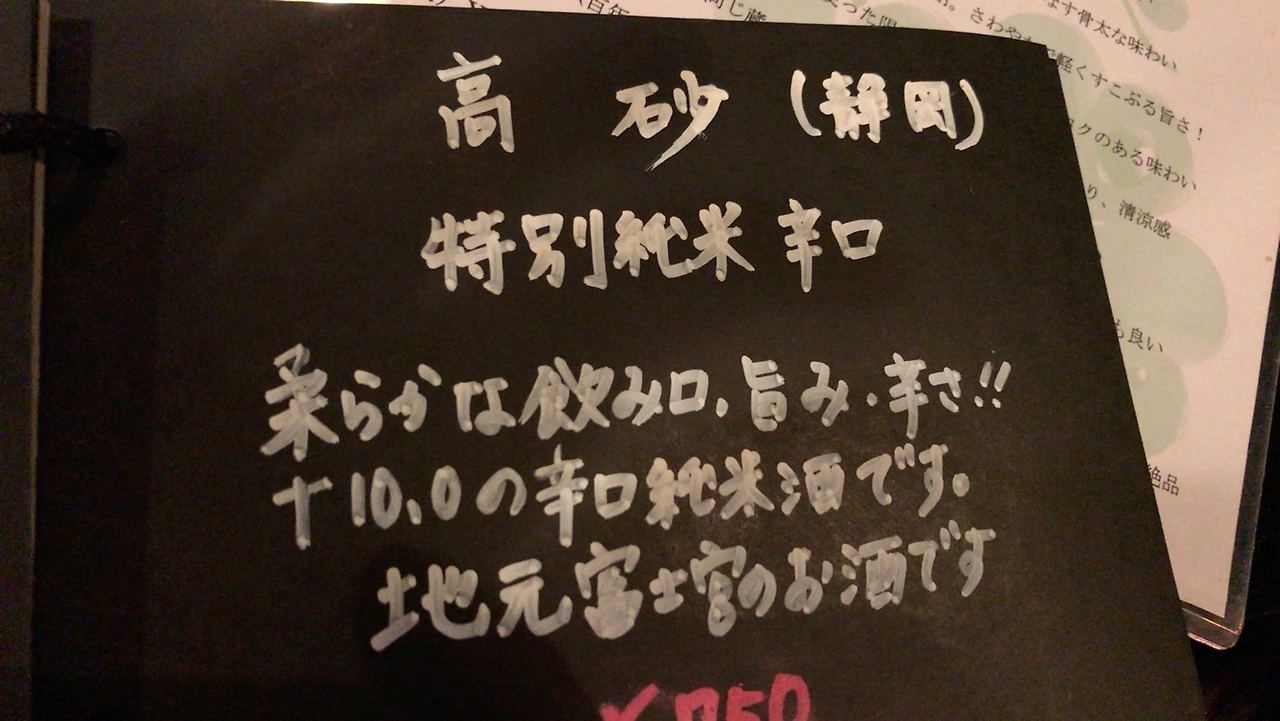 高 砂 (静岡)
特別純米 辛口
柔らかな飲み口、旨み・辛さ!!
+10.0の辛口純米酒です。
地元富士宮のお酒です
¥750
なす骨太な味わい
軽くすこぶる旨さ!
クのある味わい
り、清涼感
も良い
絶品